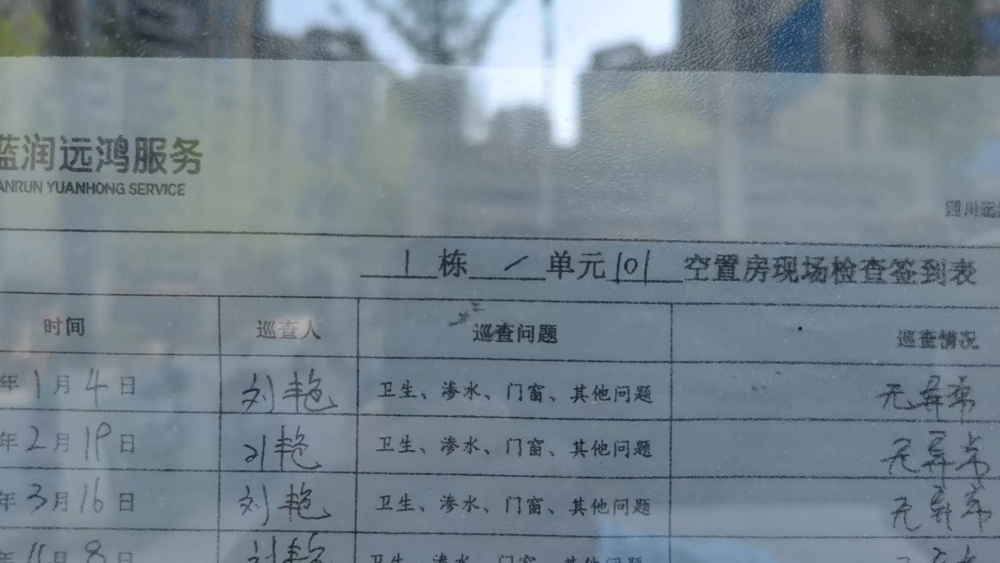 蓝润远鸿服务
ANRUN YUANHONG SERVICE
四川远
1栋 / 单元101 空置房现场检查签到表
时间 巡查人 巡查问题 巡查情况
年1月4日 刘艳 卫生、渗水、门窗、其他问题 无异常
年2月19日 刘艳 卫生、渗水、门窗、其他问题 无异常
年3月16日 刘艳 卫生、渗水、门窗、其他问题 无异常
年11月8日 刘艳 卫生、渗水、门窗、其他问题